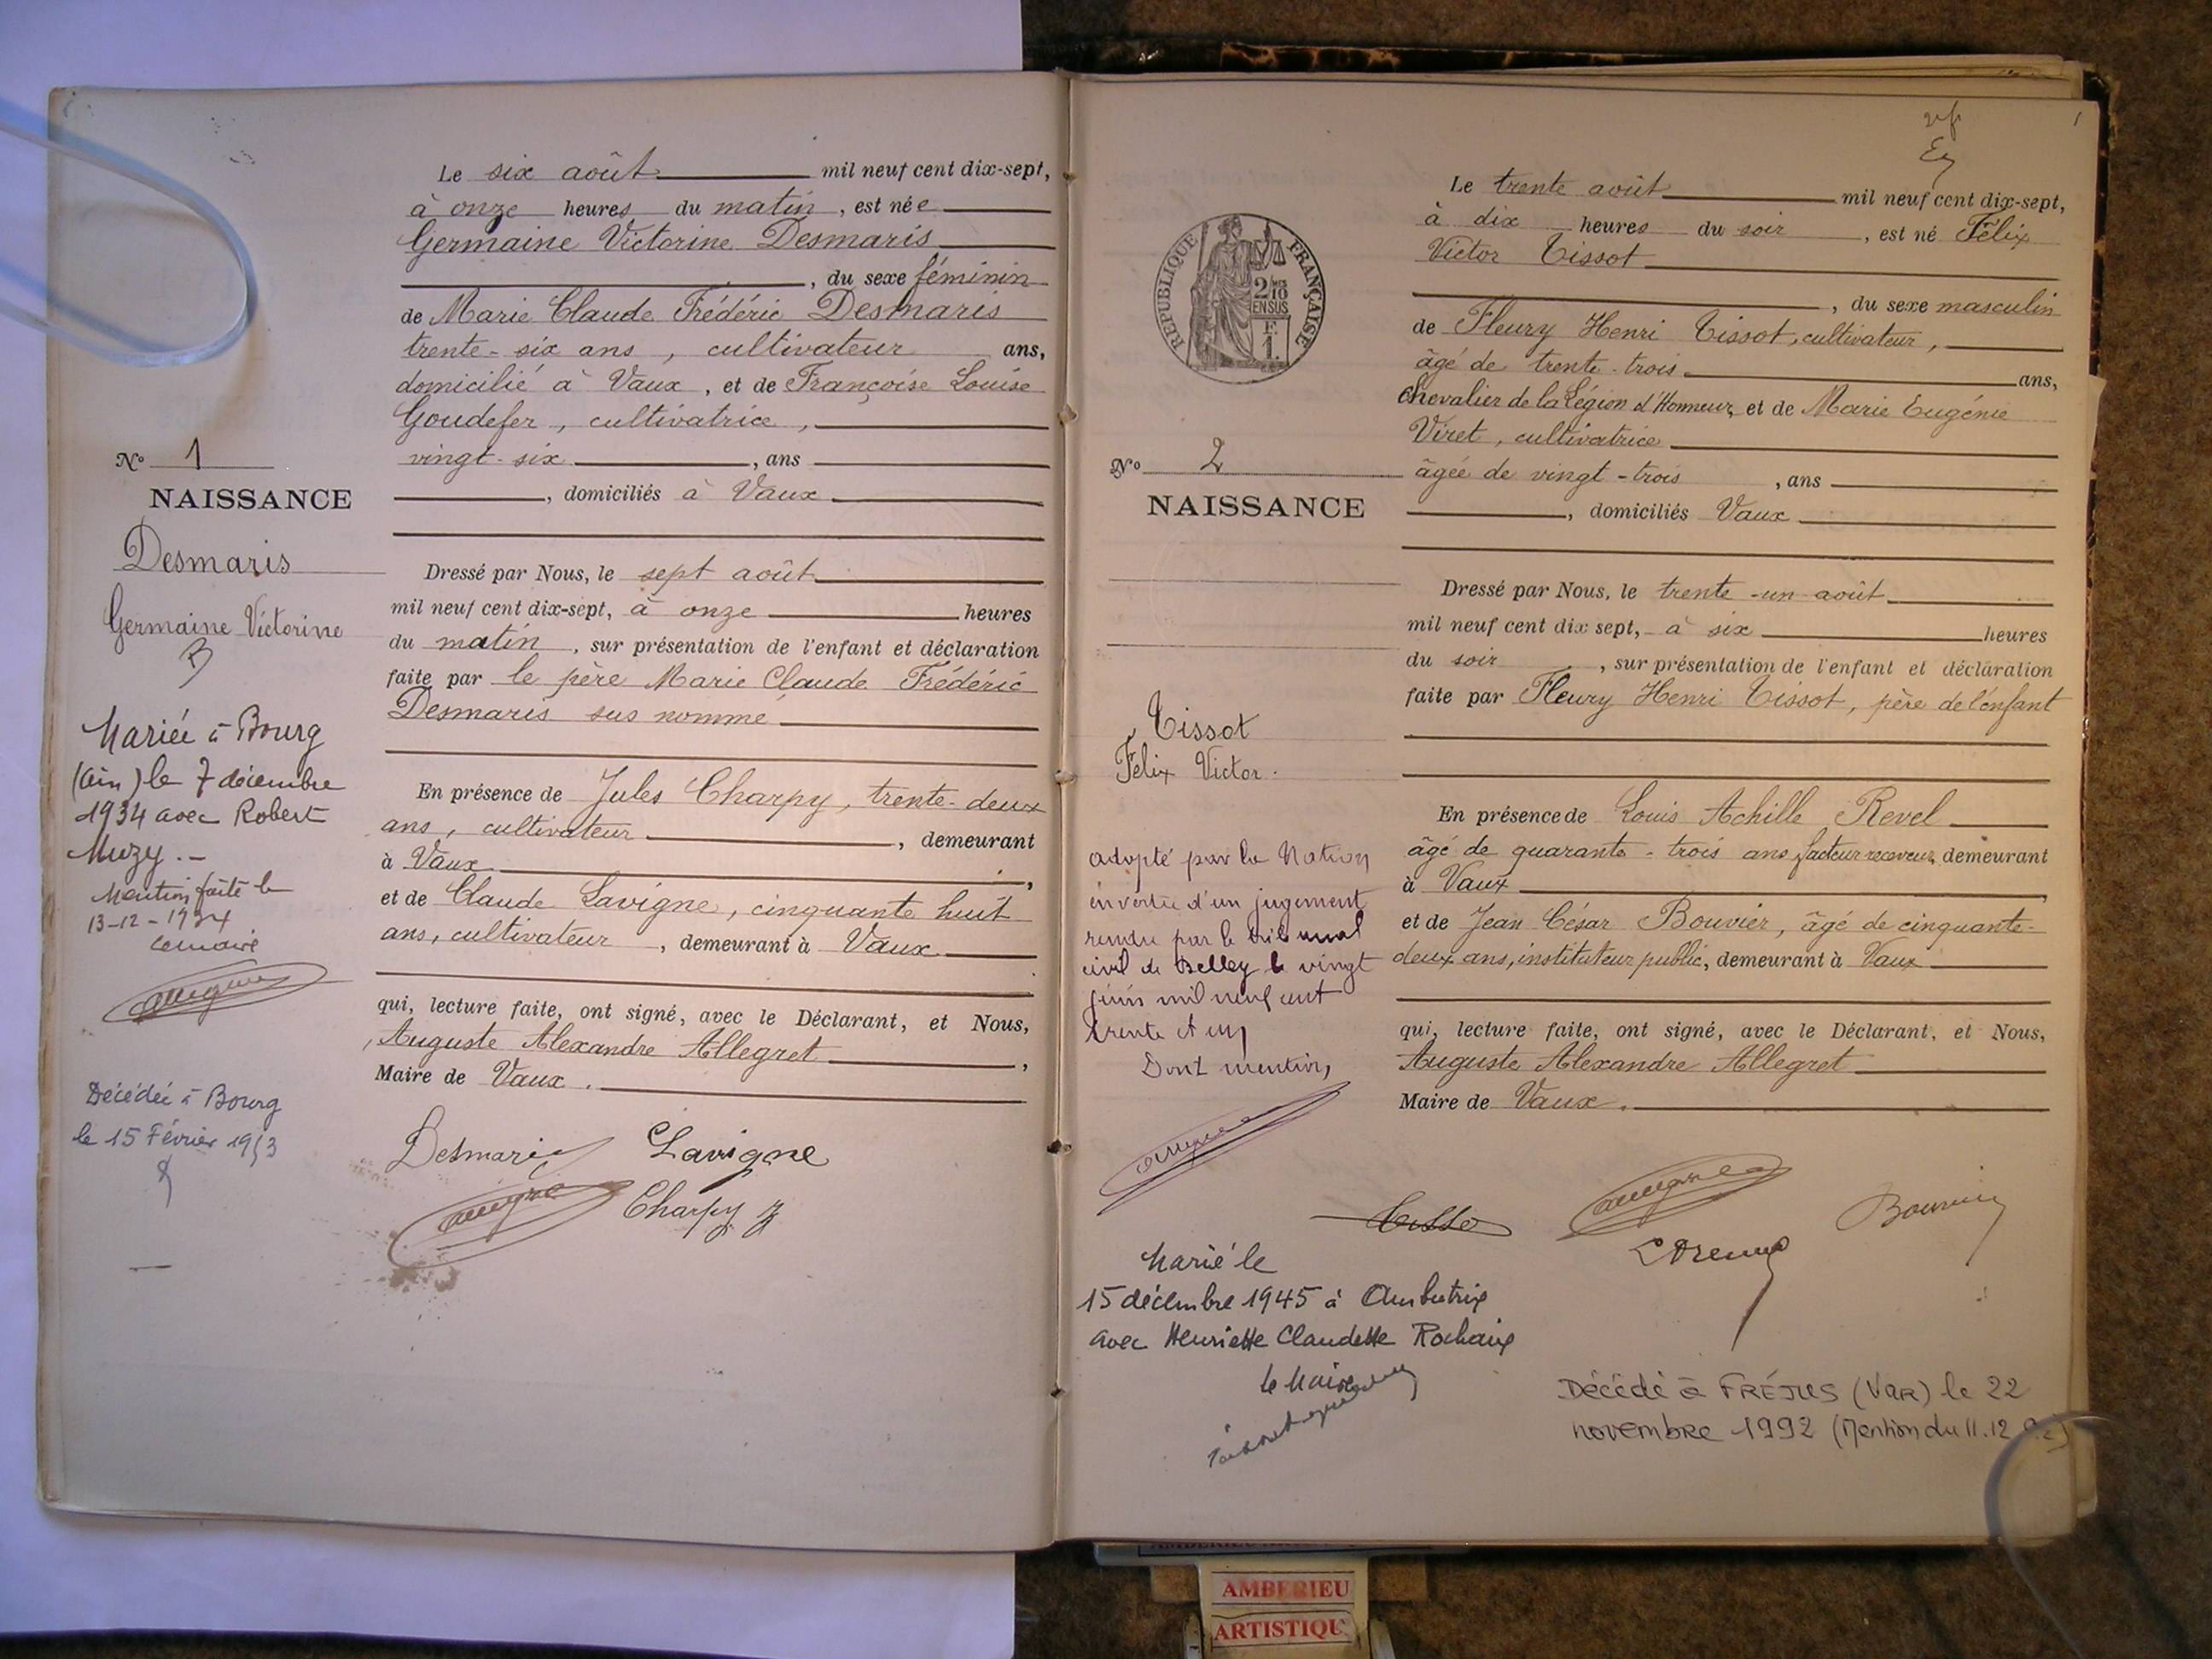 Le six août mil neuf cent dix-sept,
à onze heures du matin, est née
Germaine Victorine Desmaris
, du sexe féminin
de Marie Claude Frédéric Desmaris
trente-six ans, cultivateur ans,
domicilié à Vaux, et de Françoise Louise
Goudefer, cultivatrice,
vingt-six, ans
, domiciliés à Vaux
Dressé par Nous, le sept août
mil neuf cent dix-sept, à onze heures
du matin, sur présentation de l'enfant et déclaration
faite par le père Marie Claude Frédéric
Desmaris sus nommé
En présence de Jules Charpy, trente-deux
ans, cultivateur, demeurant
à Vaux,
et de Claude Lavigne, cinquante huit
ans, cultivateur, demeurant à Vaux
qui, lecture faite, ont signé, avec le Déclarant, et Nous,
Auguste Alexandre Allegret,
Maire de Vaux.
Desmaris Lavigne
Charpy
No 1
NAISSANCE
Desmaris
Germaine Victorine
Mariée à Bourg
(Ain) le 7 décembre
1934 avec Robert
Muzy.-
Mention faite le
13-12-1934
Le maire
Décédée à Bourg
le 15 Février 1953
Le trente août mil neuf cent dix-sept,
à dix heures du soir, est né Félix
Victor Tissot
, du sexe masculin
de Fleury Henri Tissot, cultivateur,
âgé de trente-trois ans,
chevalier de la Légion d'Honneur, et de Marie Eugénie
Viret, cultivatrice
âgée de vingt-trois, ans
, domiciliés Vaux
Dressé par Nous, le trente-un août
mil neuf cent dix sept, à six heures
du soir, sur présentation de l'enfant et déclaration
faite par Fleury Henri Tissot, père de l'enfant
En présence de Louis Achille Revel
âgé de quarante-trois ans, facteur receveur, demeurant
à Vaux,
et de Jean César Bouvier, âgé de cinquante-
deux ans, instituteur public, demeurant à Vaux
qui, lecture faite, ont signé, avec le Déclarant, et Nous,
Auguste Alexandre Allegret
Maire de Vaux.
REPUBLIQUE FRANÇAISE
2/10
EN SUS
F.
1.
No 2
NAISSANCE
Tissot
Félix Victor.
adopté par la Nation
en vertu d'un jugement
rendu par le tribunal
civil de Belley le vingt
juin mil neuf cent
trente et un
Dont mention,
Tissot
Bouvier
Marié le
15 décembre 1945 à Ambutrix
avec Henriette Claudette Rochaix
Le Maire
Décédé à FRÉJUS (VAR) le 22
novembre 1992 (Mention du 11.12.92)
AMBERIEU
ARTISTIQU